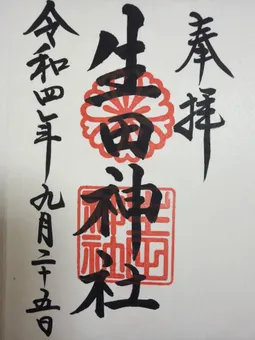 奉拝
生田神社
生田神社
令和四年九月二十五日